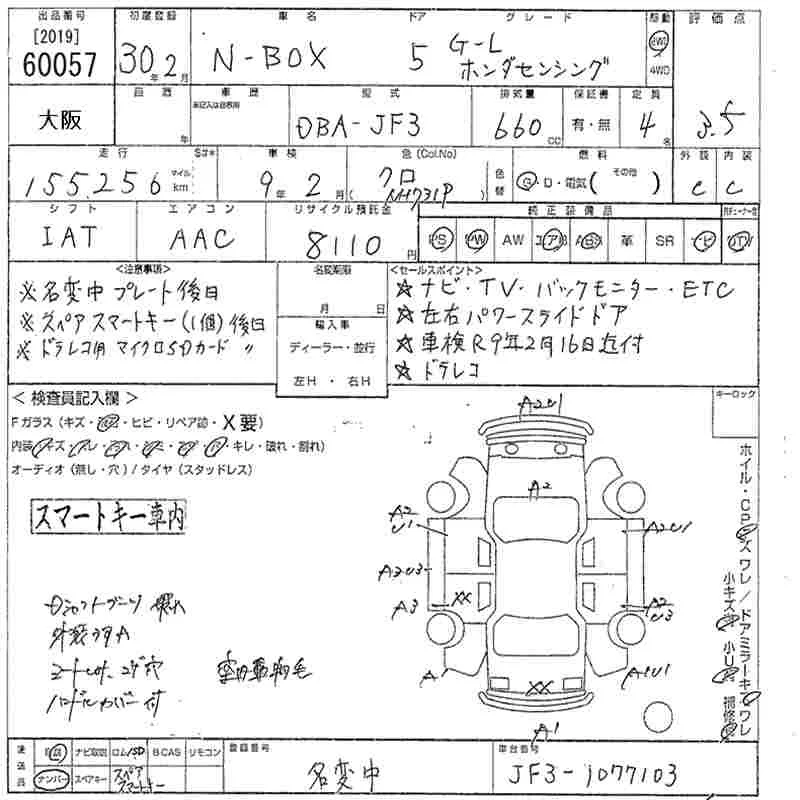 出品番号 初度登録 車名 ドア グレード 駆動 評価点
[2019]
60057 30年2月 N-BOX 5 G-L
ホンダセンシング 2WD 4WD
大阪 自歴 車歴 型式 排気量 保証書 定員
未記入は自家用
年 DBA-JF3 660cc 有・無 4名 3.5
走行 車検 色(Col.No) 燃料 外装 内装
155,256 マイル km 9年2月 クロ (NH731P) 色替 G・D・電気( その他 ) C C
シフト エアコン リサイクル預託金 純正装備品
IAT AAC 8110円 PS PW AW エアB ABS 革 SR ナビ TV
<注意事項> 名変期限 <セールスポイント>
※名変中 プレート後日
※スペアスマートキー(1個)後日
※ドラレコ用 マイクロSDカード 〃
月 日
輸入車
ディーラー・並行
左H ・ 右H
☆ナビ・TV・バックモニター・ETC
☆左右パワースライドドア
☆車検R9年2月16日迄付
☆ドラレコ
<検査員記入欄> キーロック
Fガラス(キズ・・ヒビ・リペア跡・X要)
内装(キズ・・・・・・キレ・破れ・割れ)
オーディオ(無し・穴)/タイヤ(スタッドレス)
スマートキー車内
Dシャフトブーツ 破れ
外装ウスA
コートヒカリ、コゲ穴
ハンドルカバー付
室内動物毛
A2U1
A2
A2
U1
A2U1
A2U3
A3
XX
A2
U3
A1
A1U1
XX
A1
ホイル・CPキズワレ/ドアミラーキズワレ
小キズ 小U 補修
後送品 取説 ナビ取説 ロム/SD B-CAS リモコン 登録番号 車台番号
ナンバー スペアキー スペアスマートキー 名変中 JF3-1077103